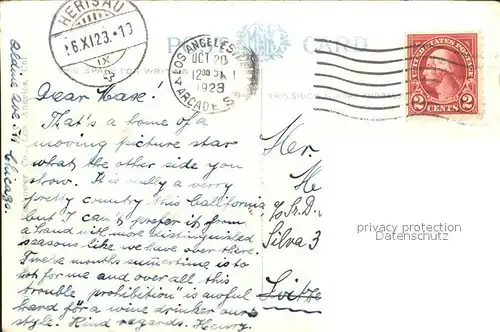 HERISAU
6.XI.23.-10
IX
LOS ANGELES
OCT 20
12 30 PM
1923
ARCADE S
POST CARD
UNITED STATES POSTAGE
2 CENTS 2
THIS SPACE FOR WRITING
THIS SIDE
Chicago.
Dear Hase!
That's a home of a
moving picture star
what the other side you
show. It is really a verry
pretty country this California
but I can't prefer it from
a land with more distinguished
seasons like we have over there.
Twelve months summertime is to
hot for me and over all this
trouble prohibition is awful
hard för a wine drinker our
style. Kind regards. Henry.
Her.
c/o Sr. D.
Silva 3
privacy protection
Datenschutz